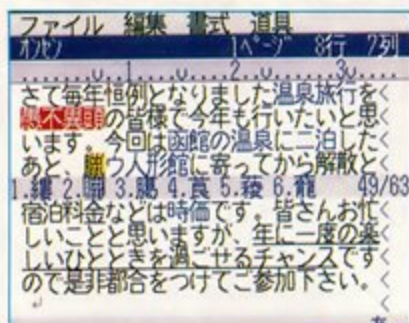 ファイル 編集 書式 道具
オンセン 1ページ 8行 7列
さて毎年恒例となりました温泉旅行を
愚不異頭の皆様で今年も行いたいと思<
います。今回は函館の温泉に二泊した<
あと、ウ人形館に寄ってから解散と<
49/63
宿泊料金などは時価です。皆さんお忙<
しいことと思いますが、年に一度の楽<
しいひとときを過ごせるチャンスです<
ので是非都合をつけてご参加下さい。<